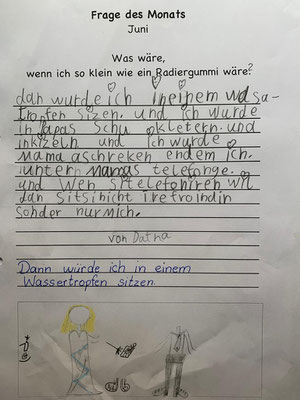 Frage des Monats
Juni
Was wäre,
wenn ich so klein wie ein Radiergummi wäre?
dan wurde ich in einem Wasa-
tropfen sizen. und ich wurde
in Papas Schu kletern. und
inkizeln und ich wurde
mama aschreken endem ich.
unter mamas telefon
und wen si telefoniren wil
dan sit si nicht ire froindin
sonder nur mich.
von
Dann würde ich in einem
Wassertropfen sitzen.